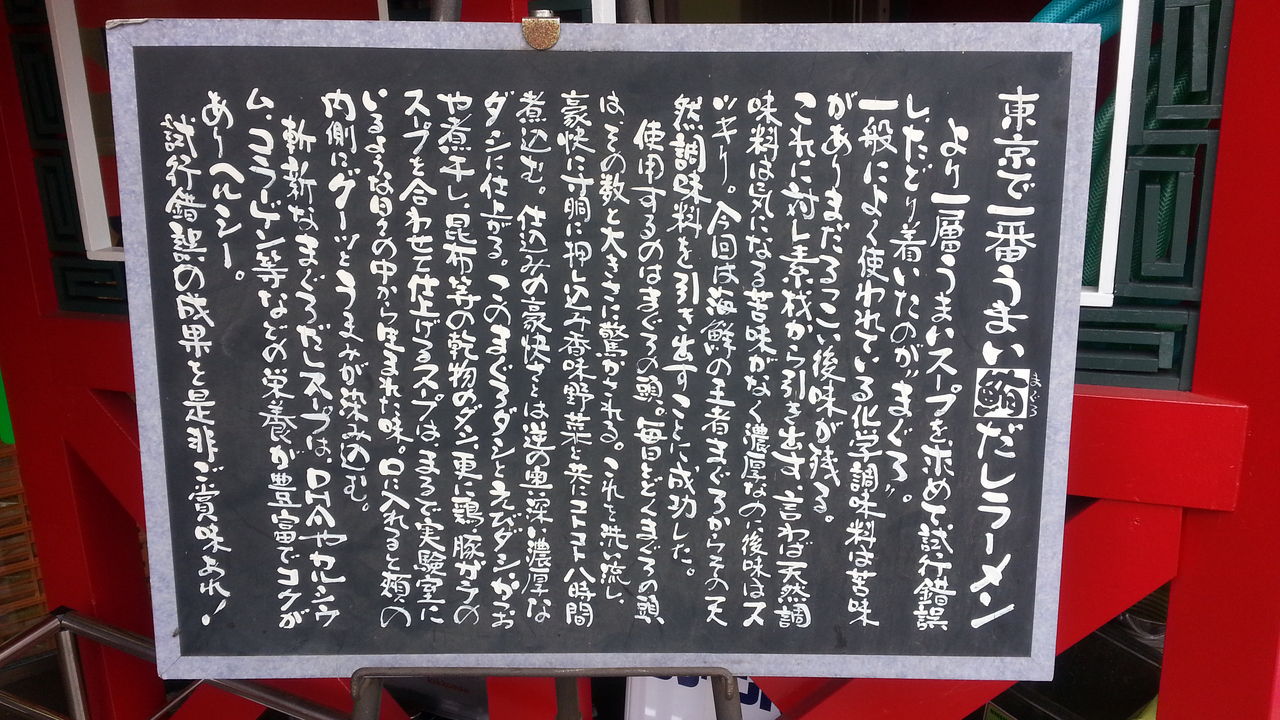 東京で一番うまい鮪だしラーメン
まぐろ
より一層うまいスープを求めて試行錯誤
し、たどり着いたのが“まぐろ”。
一般によく使われている化学調味料は苦味
がありまだるっこい後味が残る。
これに対し素材から引き出す言わば天然調
味料は気になる苦味がなく濃厚なのに後味はス
ッキリ。今回は海鮮の王者まぐろからその天
然調味料を引き出すことに成功した。
使用するのはまぐろの頭。毎日とどくまぐろの頭
はその数と大きさに驚かされる。これを洗い流し、
豪快に寸胴に押し込み香味野菜と共にコトコト八時間
煮込む。仕込みの豪快さとは逆の奥い深い濃厚な
ダシに仕上がる。このまぐろダシとえびダシ、かつお
や煮干し、昆布等の乾物のダシ、更に鶏、豚ガラの
スープを合わせて仕上げるスープは、まるで実験室に
いるような日々の中から生まれた味。口に入れると頬の
内側にグーッとうまみが染み込む。
斬新なまぐろだしスープは、DHAやカルシウ
ム、コラーゲン等などの栄養が豊富でコクが
ありヘルシー。
試行錯誤の成果を是非ご賞味あれ!